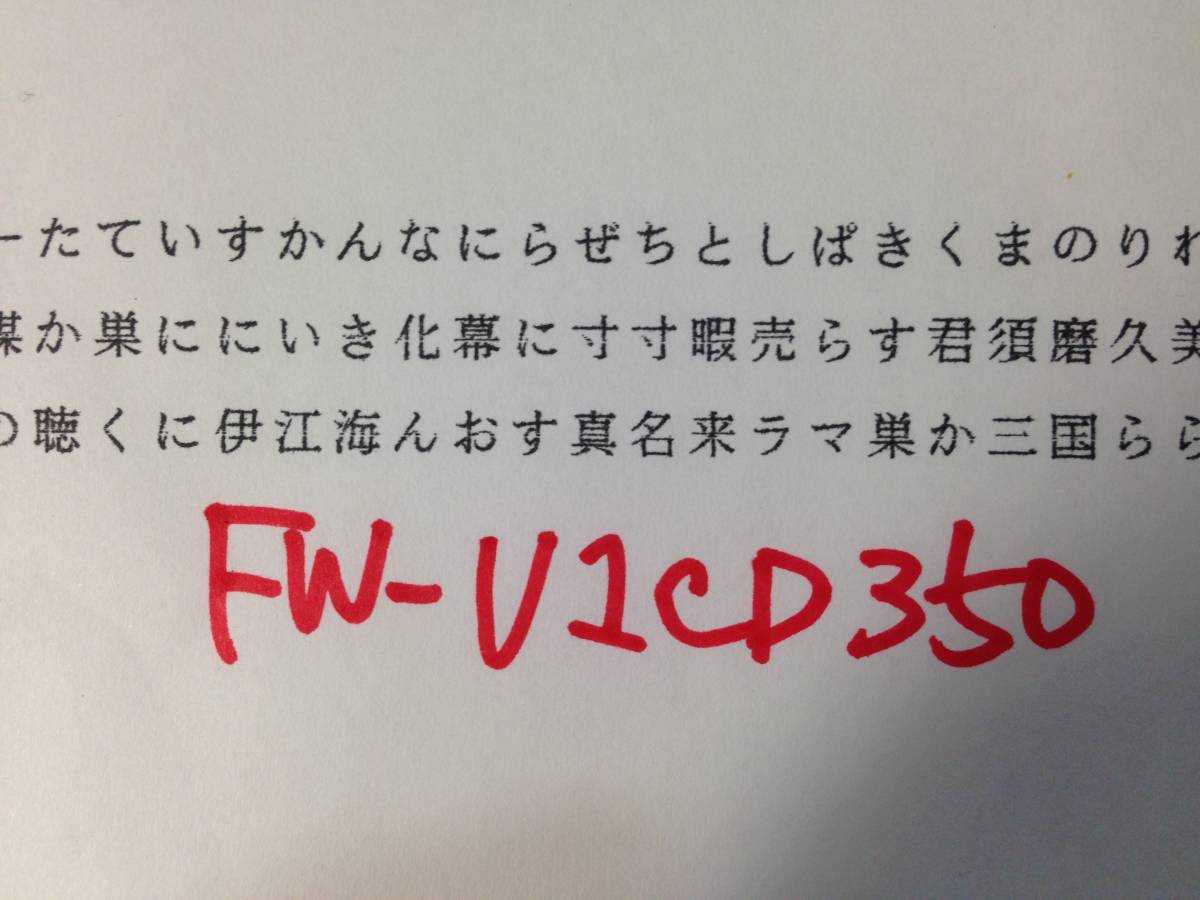 ーたていすかんなにらぜちとしぱきくまのりれ
媒か巣ににいき化幕に寸寸暇売らす君須磨久美
の聴くに伊江海んおす真名来ラマ巣か三国らら
FW-U1CD350